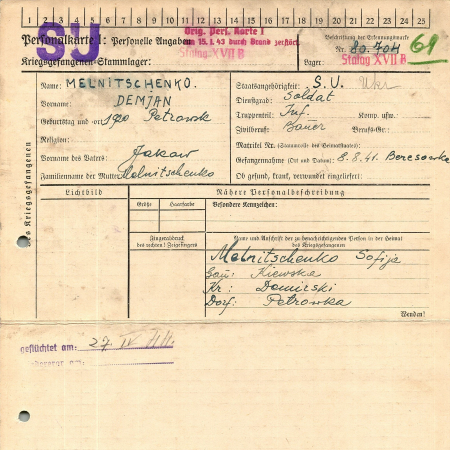 1 2 3 4 5 6 7 8 9 10 11 12 13 14 15 16 17 18 19 20 21 22 23 24 25
SU
Orig. Pers. Karte I
am 15. I. 43 durch Brand zerstört.
Stalag XVII B
Personalkarte I: Personelle Angaben
Beschriftung der Erkennungsmarke
Nr. 80.704
61
Kriegsgefangenen-Stammlager:
Lager: Stalag XVII B
des Kriegsgefangenen
Name: MELNITSCHENKO.
Vorname: DEMJAN
Geburtstag und -ort: Petrowsk
Religion:
Vorname des Vaters: Jakow
Familienname der Mutter: Melnitschenko
Staatsangehörigkeit: S. U. Ukr
Dienstgrad: Soldat
Truppenteil: Inf. Komp. usw.:
Zivilberuf: Bauer Berufs-Gr.:
Matrikel Nr. (Stammrolle des Heimatstaates):
Gefangennahme (Ort und Datum): 8.8.41.
Ob gesund, krank, verwundet eingeliefert:
Lichtbild
Nähere Personalbeschreibung
Größe
Haarfarbe
Besondere Kennzeichen:
Fingerabdruck
des rechten ! Zeigefingers
Name und Anschrift der zu benachrichtigenden Person in der Heimat
des Kriegsgefangenen
Melnitschenko Sofija
Gau: Kiewska
Kr: Demirski
Dorf: Petrowka
Wenden!
geflüchtet am: 27. IV. 44.